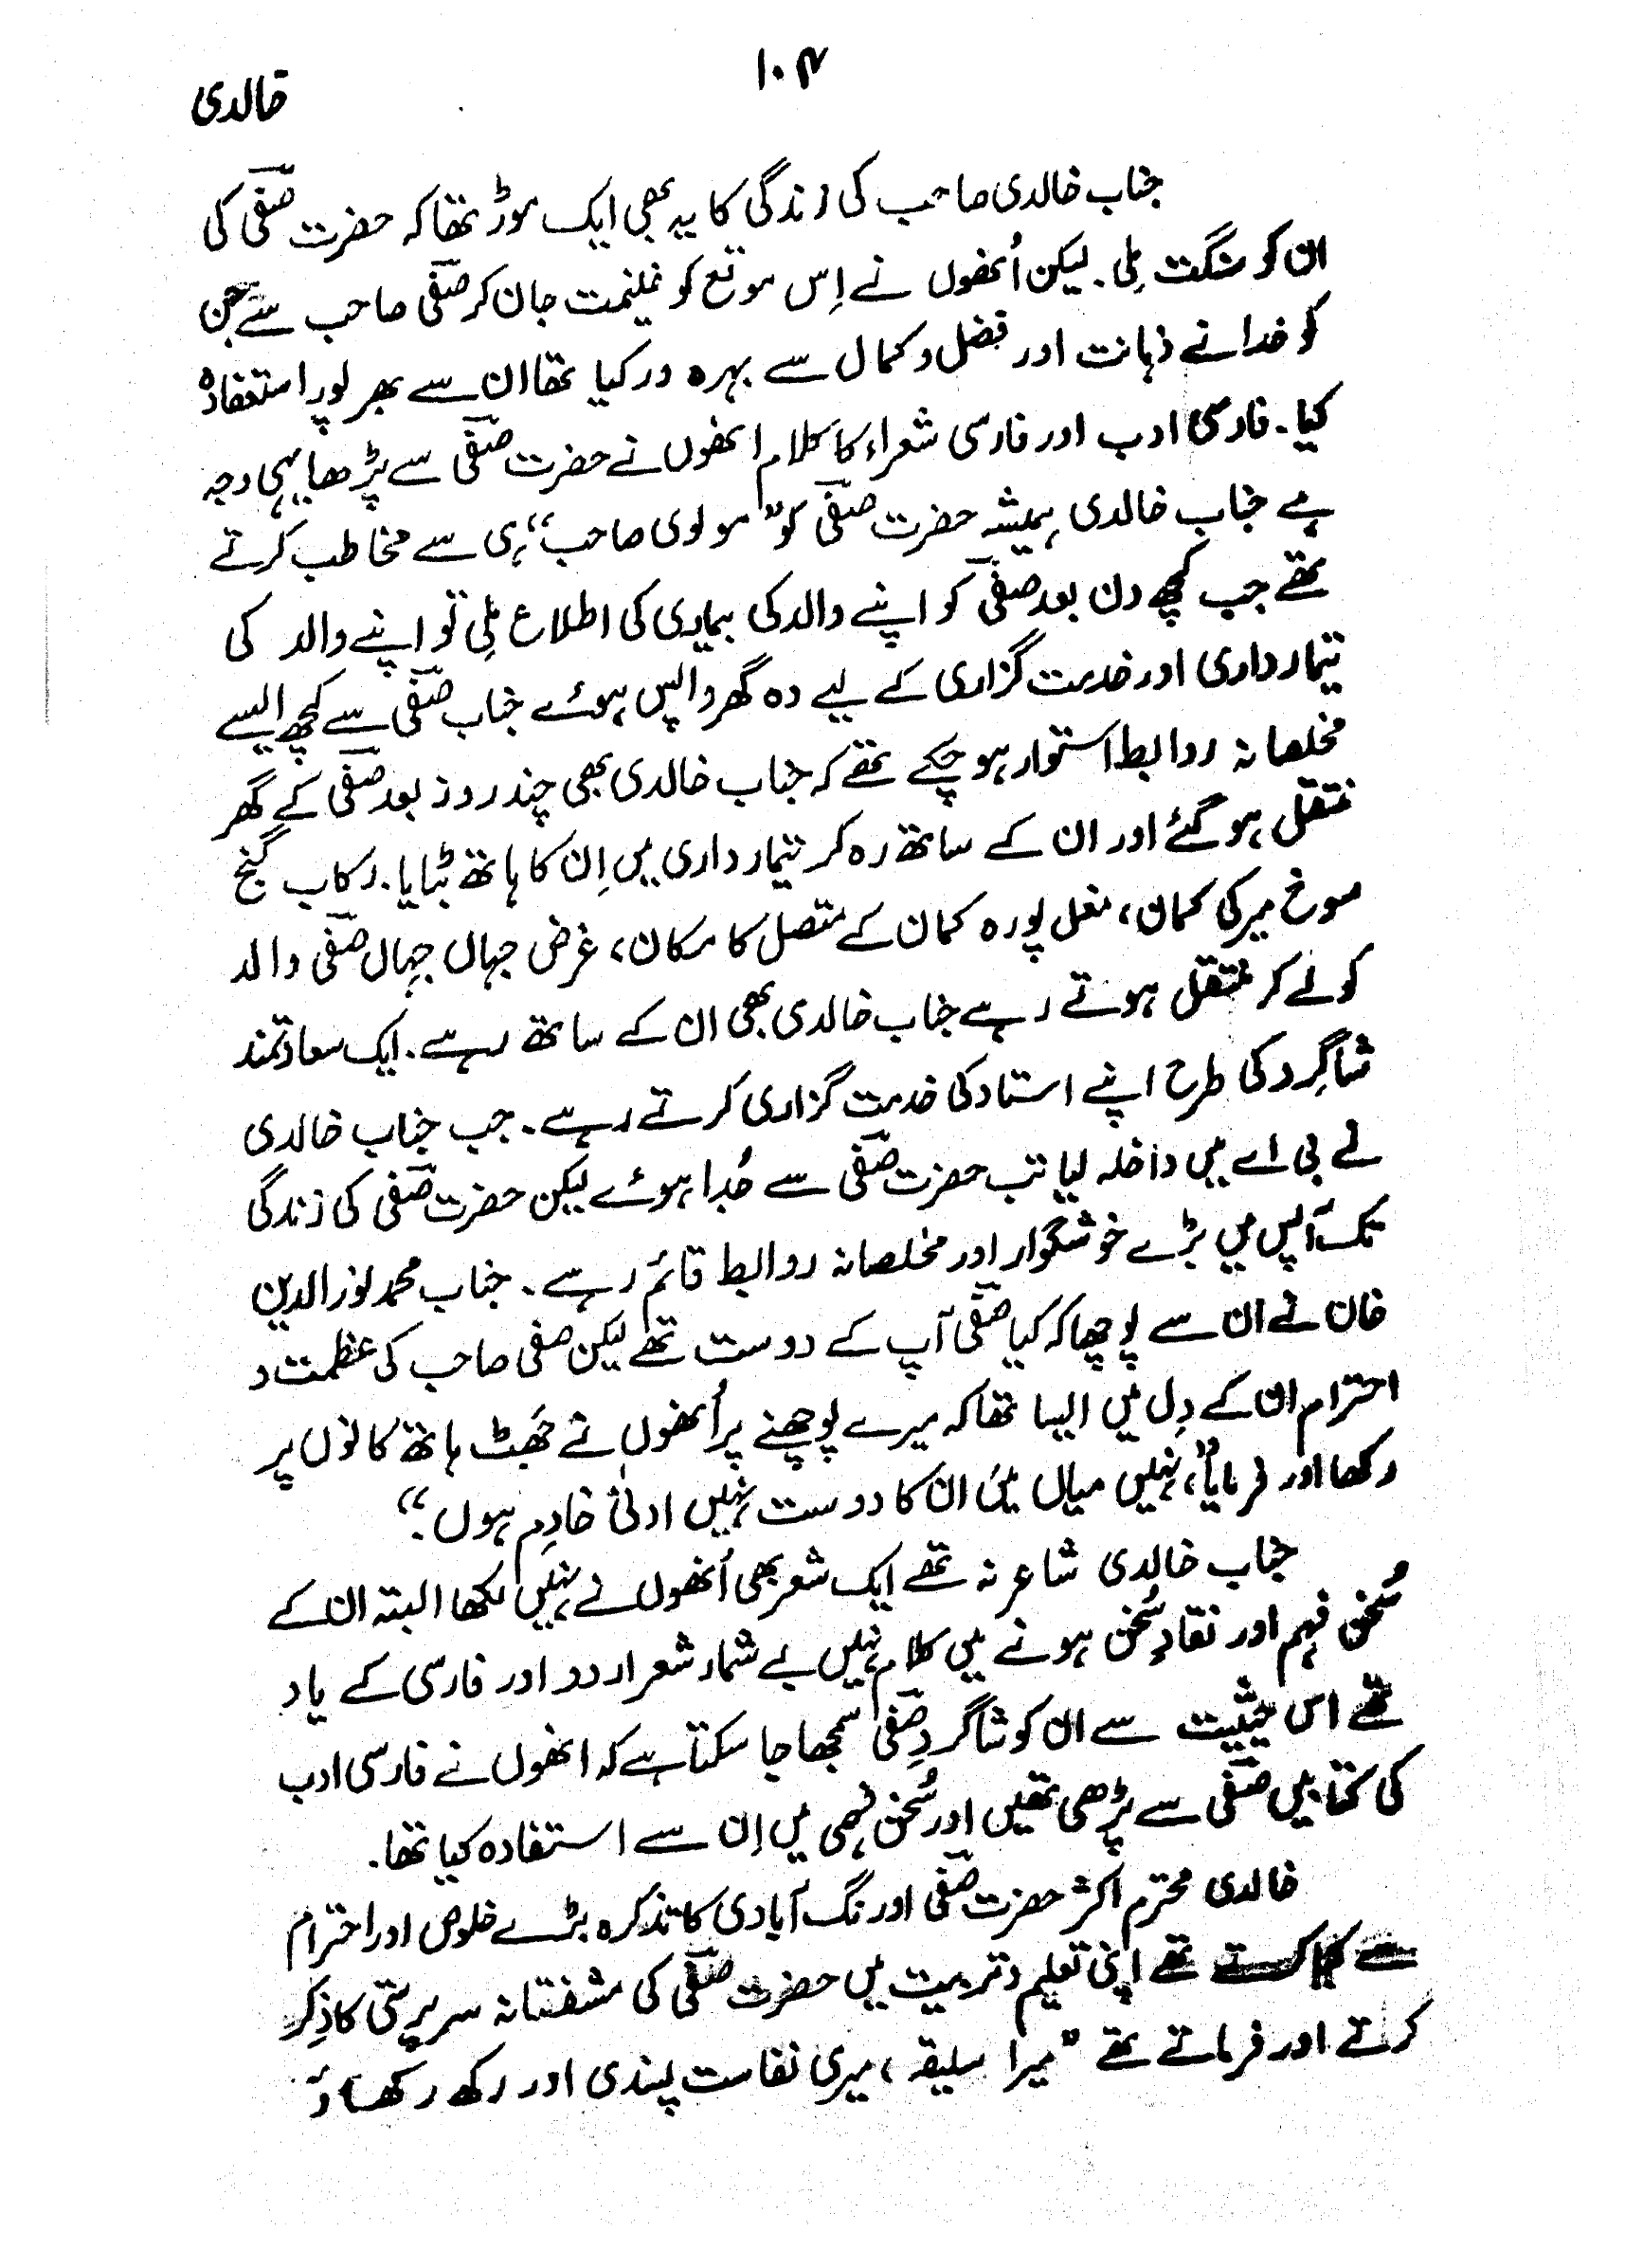 ۱۰۴
خالدی
جناب خالدی صاحب کی زندگی کا یہ بھی ایک موڑ تھا کہ حضرت صفیؔ کی
ان کو سنگت ملی۔ لیکن اُنھوں نے اِس موقع کو غنیمت جان کر صفیؔ صاحب سے جن
کو خدا نے ذہانت اور فضل و کمال سے بہرہ ور کیا تھا ان سے بھر پور استفادہ
کیا۔ فارسی ادب اور فارسی شعراء کا کلام انھوں نے حضرت صفیؔ سے پڑھا یہی وجہ
ہے جناب خالدی ہمیشہ حضرت صفیؔ کو "مولوی صاحب" ہی سے مخاطب کرتے
تھے جب کچھ دن بعد صفیؔ کو اپنے والد کی بیماری کی اطلاع ملی تو اپنے والد کی
تیمارداری اور خدمت گزاری کے لیے وہ گھر واپس ہوئے جناب صفیؔ سے کچھ ایسے
مخلصانہ روابط استوار ہو چکے تھے کہ جناب خالدی بھی چند روز بعد صفیؔ کے گھر
منتقل ہو گئے اور ان کے ساتھ رہ کر تیمارداری میں اِن کا ہاتھ بٹایا۔ رکاب گنج
سوخ میر کی کمان، مغل پورہ کمان کے متصل کا مکان، غرض جہاں جہاں صفیؔ والد
کو لے کر منتقل ہوتے رہے جناب خالدی بھی ان کے ساتھ رہے۔ ایک سعادتمند
شاگِرد کی طرح اپنے استاد کی خدمت گزاری کرتے رہے۔ جب جناب خالدی
نے بی اے میں داخلہ لیا تب حضرت صفیؔ سے جُدا ہوئے لیکن حضرت صفیؔ کی زندگی
تک آپس میں بڑے خوشگوار اور مخلصانہ روابط قائم رہے۔ جناب محمد نور الدین
خان نے ان سے پوچھا کہ کیا صفیؔ آپ کے دوست تھے لیکن صفی صاحب کی عظمت و
احترام ان کے دِل میں ایسا تھا کہ میرے پوچھنے پر اُنھوں نے جَھٹ ہاتھ کانوں پر
رکھا اور فرمایا "، نہیں میاں میں ان کا دوست نہیں ادنیٰ خادِم ہوں۔"
جناب خالدی شاعر نہ تھے ایک شعر بھی اُنھوں نے نہیں لکھا البتہ ان کے
سُخن فہم اور نقادِ سُخن ہونے میں کلام نہیں بے شمار شعر اردو اور فارسی کے یاد
تھے اس حیثیت سے ان کو شاگردِ صفیؔ سمجھا جا سکتا ہے کہ انھوں نے فارسی ادب
کی کتابیں صفیؔ سے پڑھی تھیں اور سُخن فہمی میں اِن سے استفادہ کیا تھا۔
خالدی محترم اکثر حضرت صفیؔ اورنگ آبادی کا تذکرہ بڑے خلوص اور احترام
سے کیا کرتے تھے اپنی تعلیم و تربیت میں حضرت صفیؔ کی مشفقانہ سرپرستی کا ذِکر
کرتے اور فرماتے تھے "میرا سلیقہ، میری نفاست پسندی اور رکھ رکھاؤ